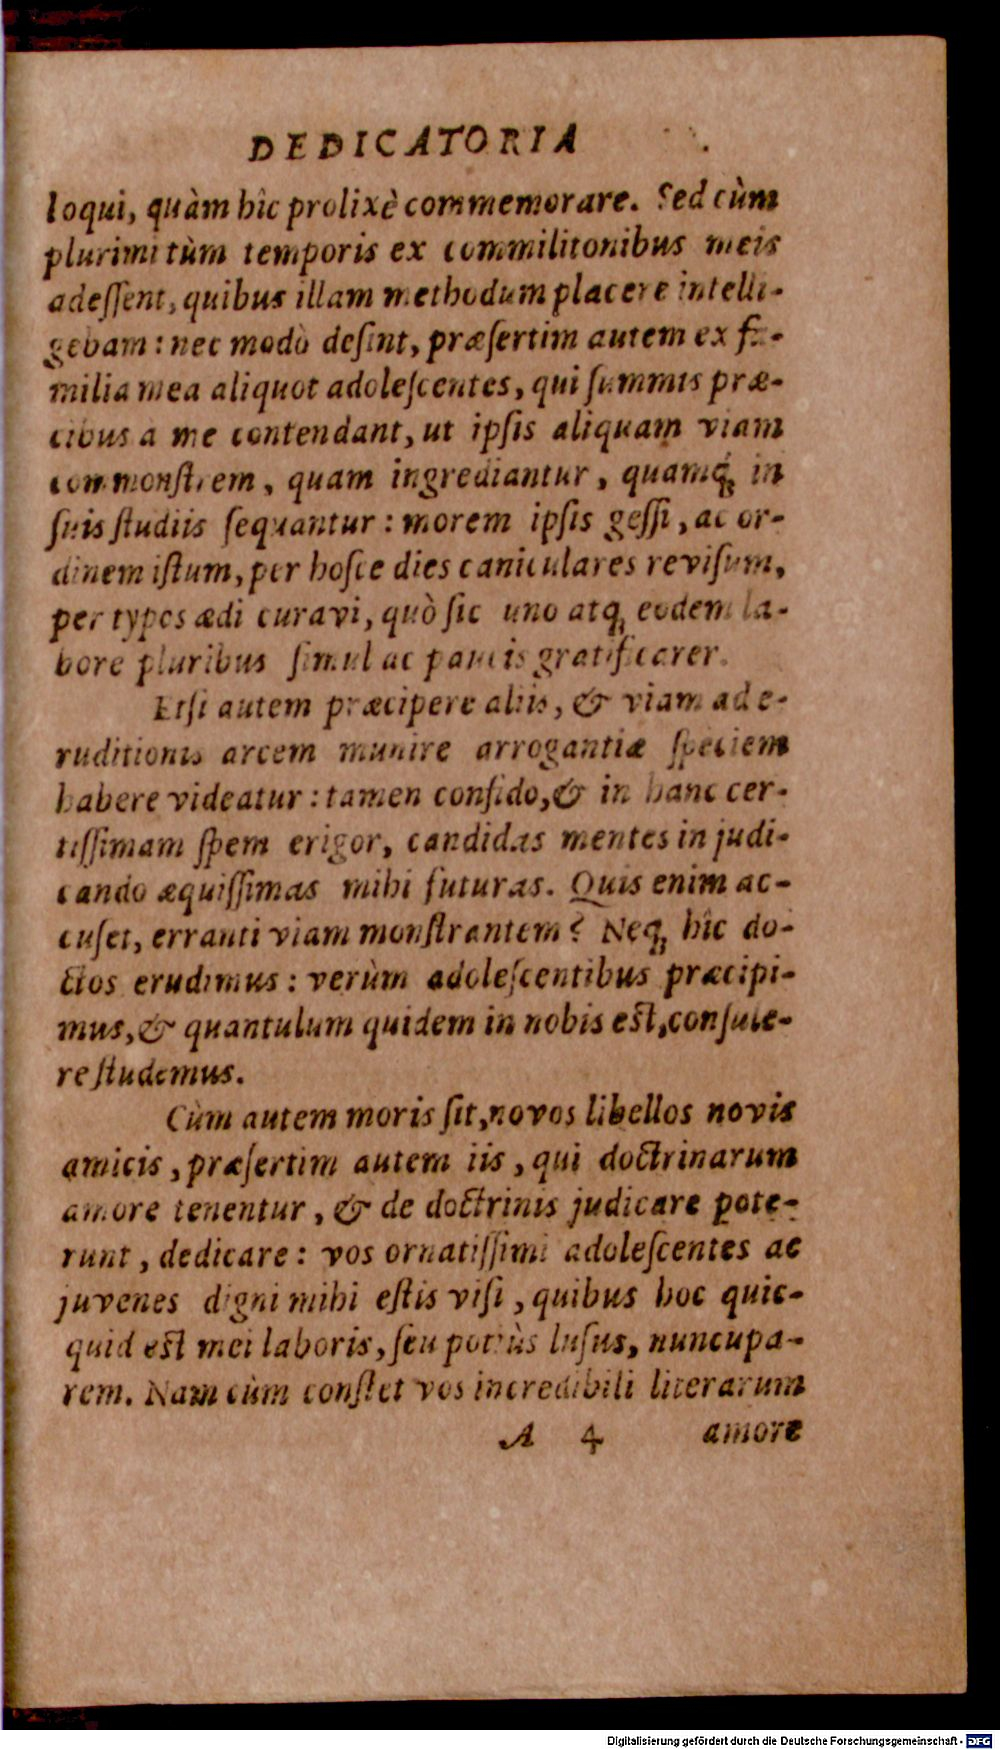 DEDICATORIA
loqui, quàm hîc prolixè commemorare. Sed cùm
plurimi tùm temporis ex commilitonibus meis
adeſſent, quibus illam methodum placere intelli-
gebam: nec modò deſint, præſertim autem ex fa-
milia mea aliquot adoleſcentes, qui ſummis præ-
cibus a me contendant, ut ipſis aliquam viam
commonſtrem, quam ingrediantur, quamq́; in
ſuis ſtudiis ſequantur: morem ipſis geſſi, ac or-
dinem iſtum, per hoſce dies caniculares reviſum,
per typos ædi curavi, quò ſic uno atq; eodem la-
bore pluribus ſimul ac paucis gratificarer.
Etſi autem præcipere aliis, & viam ad e-
ruditionis arcem munire arrogantiæ ſpeciem
habere videatur: tamen confido, & in hanc cer-
tiſſimam ſpem erigor, candidas mentes in judi-
cando æquiſſimas mihi futuras. Quis enim ac-
cuſet, erranti viam monſtrantem? Neq; hîc do-
ctos erudimus: verùm adoleſcentibus præcipi-
mus, & quantulum quidem in nobis eſt, conſule-
re ſtudemus.
Cùm autem moris ſit, novos libellos novis
amicis, præſertim autem iis, qui doctrinarum
amore tenentur, & de doctrinis judicare pote-
runt, dedicare: vos ornatiſſimi adoleſcentes ac
juvenes digni mihi eſtis viſi, quibus hoc quic-
quid eſt mei laboris, ſeu potiùs luſus, nuncupa-
rem. Nam cùm conſtet vos incredibili literarum
A 4 amore
Digitalisierung gefördert durch die Deutsche Forschungsgemeinschaft - DFG